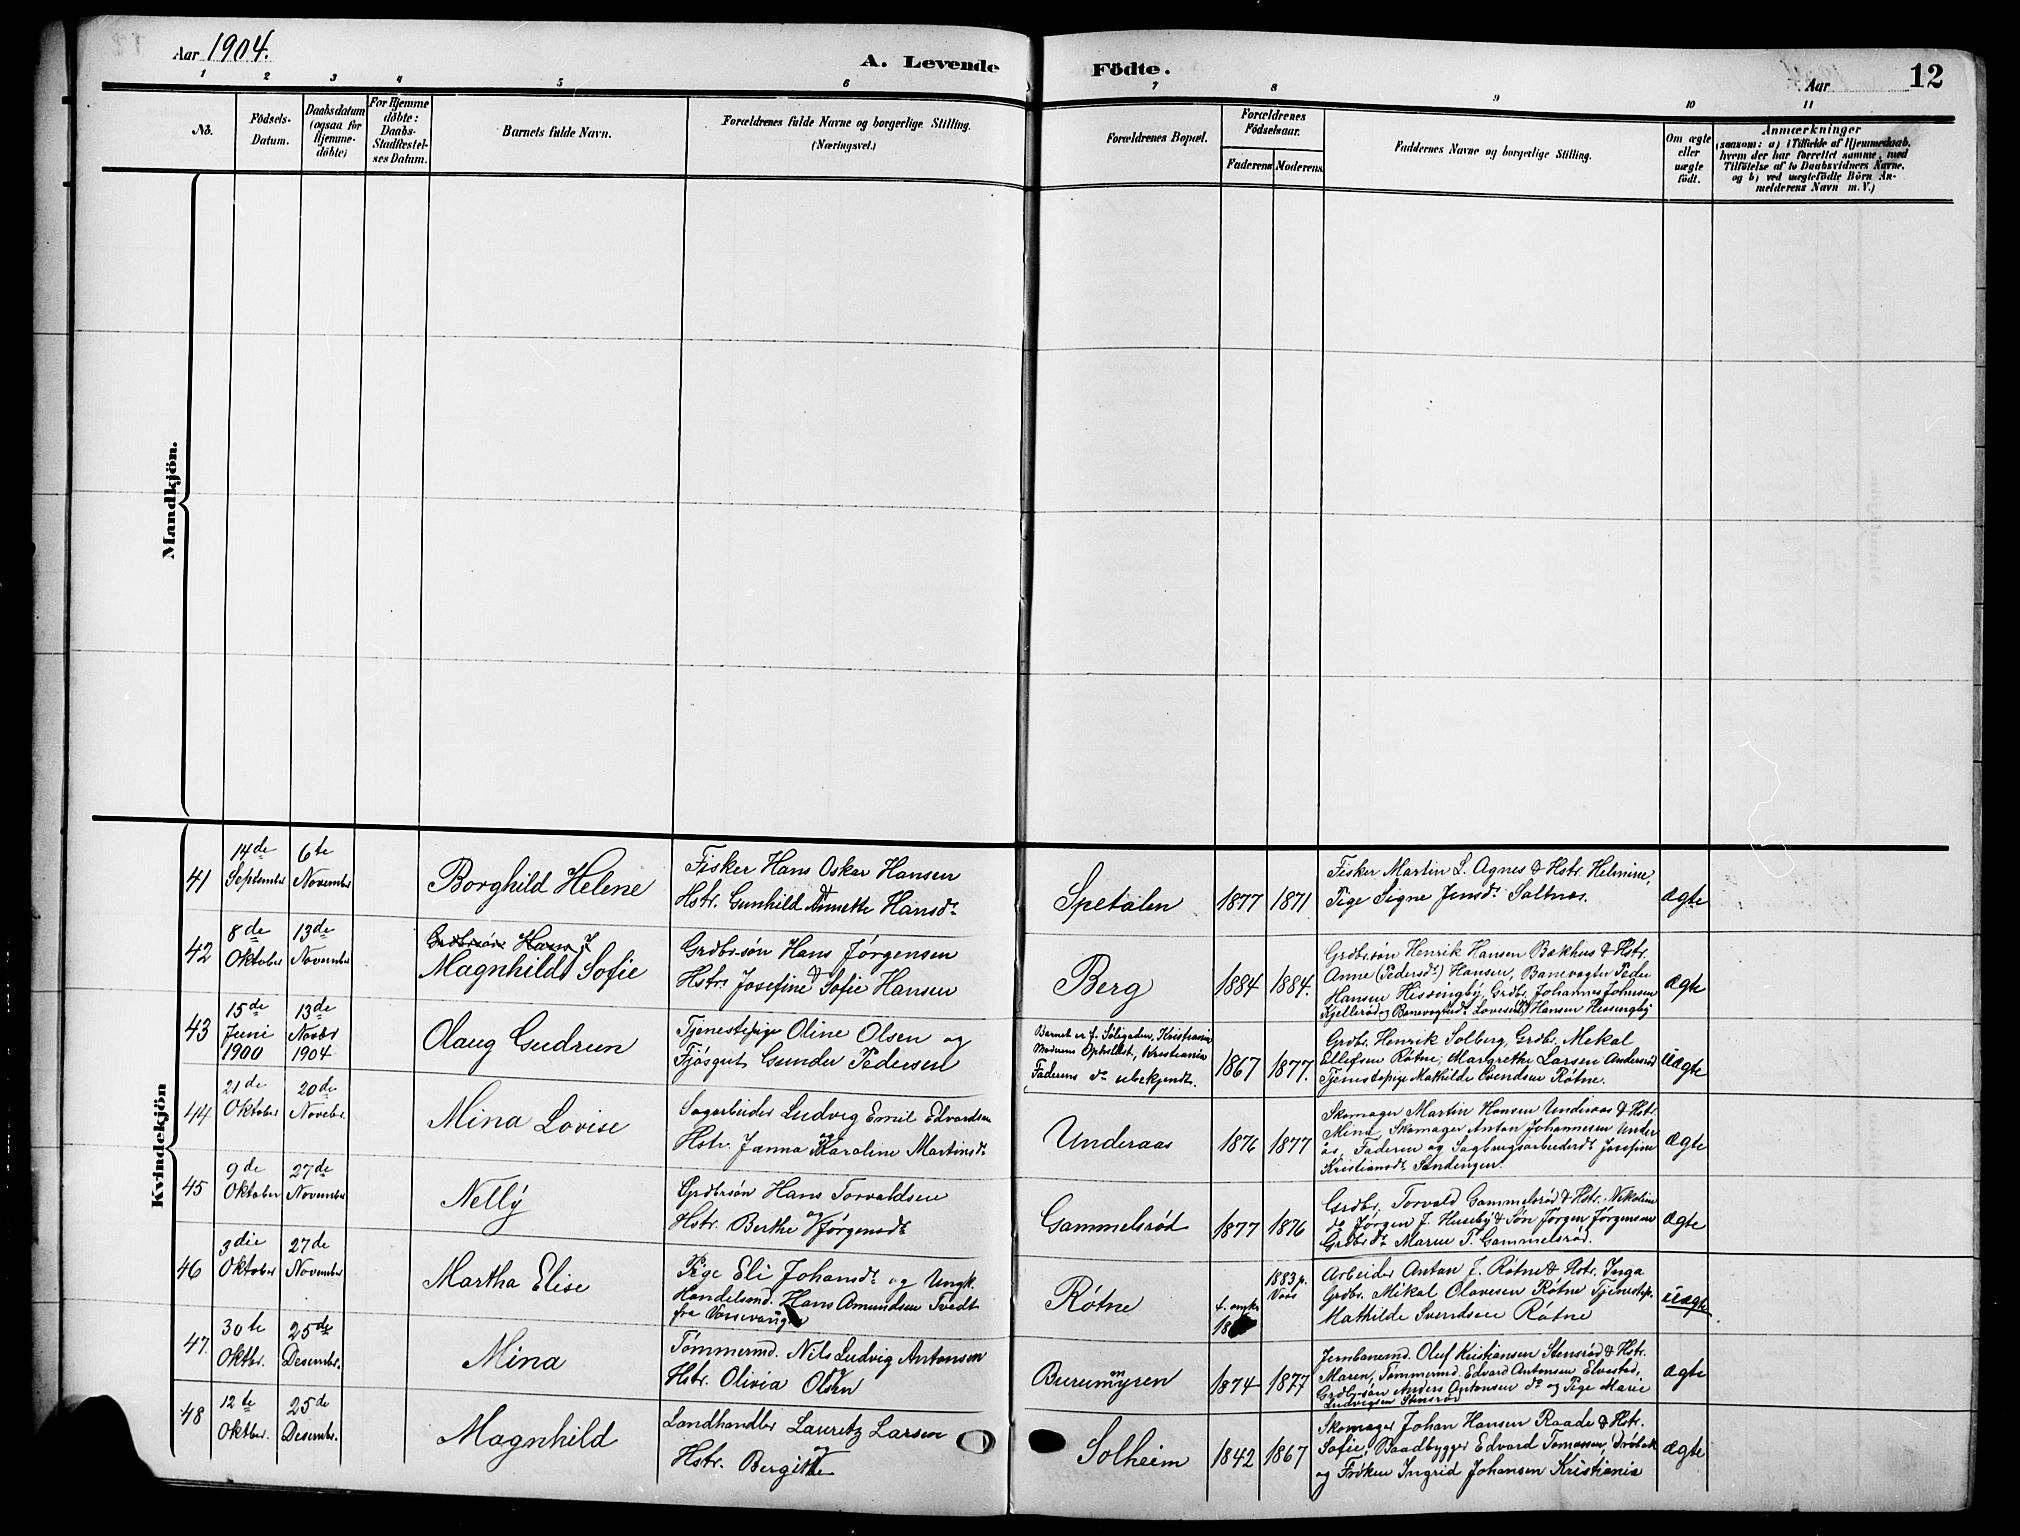 Aar 1904.
A. Levende Födte.
Aar
12
1 2 3 4 5 6 7 8 9 10 11
No.
Födsels-
Datum.
Daabsdatum
(ogsaa for
Hjemme-
döbte)
For Hjemme
döbte:
Daabs-
Stadfæstel-
ses Datum.
Barnets fulde Navn.
Forældrenes fulde Navne og borgerlige Stilling.
(Næringsvei.)
Forældrenes Bopæl.
Forældrenes
Födselsaar.
Faderens
Moderens.
Faddernes Navne og borgerlige Stilling.
Om ægte
eller
uægte
födt.
Anmærkninger
(saasom: a) i Tilfælde af Hjemmedaab,
hvem der har forrettet samme, med
Tilföielse af to Daabsvidners Navne,
og b) ved uægtefödte Börn An-
melderens Navn m. V.)
Mandkjön.
Kvindekjön
41
14de
September
6te
November
Borghild Helene
Fisker Hans Oskar Hansen
Hstr. Gunhild Annette Hansdr
Spetalen
1877
1871
Fisker Martin L. Agnes & Hstr. Helmine,
Pige Signe Jensdr Saltnæs.
ægte
42
8de
Oktober
13de
November
Grdbrsøn Hans J
Magnhild Sofie
Grdbrsøn Hans Jørgensen
& Hstr. Josefine Sofie Hansen
Berg
1884
1884.
Grdbrsøn Henrik Hansen Bækhus & Hstr.
Anne (Pedersdr) Hansen, Banevogter Peder
Hansen Hissingby, Grdbr. Johannes Johnsen
Kjellerød og Banevogterdr Lovise Hansen Hissingby
ægte
43
15de
Juni
1900
13de
Novbr
1904
Olaug Gudrun
Tjenestepige Oline Olsen og
Fjøsgut Gunder Pedersen
Barnet er f. Kristiania
Moderens Opholdst. Kristiania
Faderens do ubekjendt.
1867
1877.
Grdbr. Henrik Solberg, Grdbr. Mekal
Ellefsen Røtne, Margrethe Larsen Andersrød
Tjenestepige Mathilde Svendsen Røtne.
uægte
44
21de
Oktober
20de
Novebr.
Mina Lovise
Sagarbeider Ludvig Emil Edvardsen
og Hstr. Janna Karoline Martinsdr
Underaas
1876
1877
Skomager Martin Hansen Underaas & Hstr.
Mina, Skomager Anton Johannesen Under
ås, Faderen og Sagbrugsarbeiderdr Josefine
Kristiansdr Sandengen.
ægte
45
9de
Oktober
27de
November
Nelly
Grdbrsøn Hans Torvaldsen
og Hstr. Berthe Jørgensdr
Gammelsrød
1877
1876
Grdbr. Torvald Gammelsrød & Hstr. Nikoline
do Jørgen J. Huseby & Søn Jørgen Jørgensen
Grdbrdr Maren T. Gammelsrød.
ægte
46
3die
Oktober
27de
November
Martha Elise
Pige Eli Johansdr og Ungk.
Handelsmd. Hans Amundsen Tvedt
fra Vossevangen
Røtne
1883 p.
Voss
Arbeider Anton J. Røtne & Hstr. Inga
Grdbr. Mikal Olavesen Røtne Tjenestep.
Mathilde Svendsen Røtne
uægte
47.
30te
Oktbr.
25de
Desembr.
Mina
Tømmermd. Nils Ludvig Antonsen
Hstr. Olivia Olsen
Burummyren
1874
1877
Jernbanemd. Oluf Kristiansen Stensrød & Hstr.
Maren, Tømmermd. Edvard Antonsen Elvestad,
Grdbrsøn Anders Antonsen do og Pige Marie
Ludvigsen Stensrød
ægte
48
12te
Oktber.
25de
Desembr.
Magnhild
Landhandler Lauretz Larsen
og Hstr. Bergitte
Solheim
1842
1867
Skomager Johan Hansen Raade & Hstr.
Sofie, Baadbygger Edvard Tomassen, Drøbak
og Frøken Ingrid Johansen Kristiania
ægte